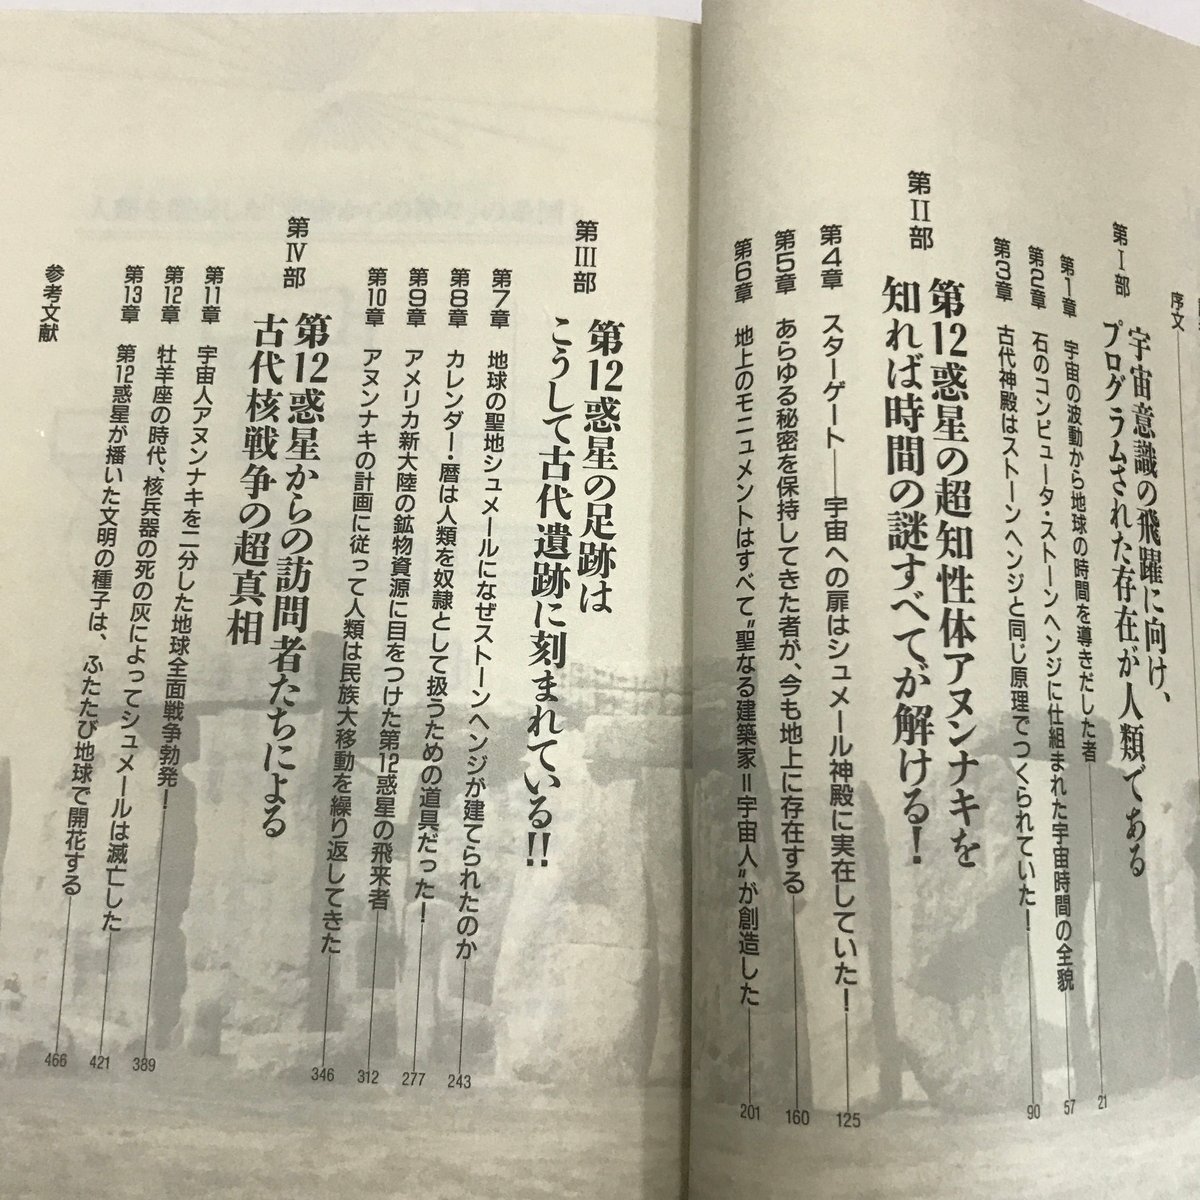 序文
第Ⅰ部
宇宙意識の飛躍に向け、
プログラムされた存在が人類である
第1章 宇宙の波動から地球の時間を導きだした者 21
第2章 石のコンピュータ・ストーンヘンジに仕組まれた宇宙時間の全貌 57
第3章 古代神殿はストーンヘンジと同じ原理でつくられていた！ 90
第Ⅱ部
第12惑星の超知性体アヌンナキを
知れば時間の謎すべてが解ける！
第4章 スターゲート——宇宙への扉はシュメール神殿に実在していた！ 125
第5章 あらゆる秘密を保持してきた者が、今も地上に存在する 160
第6章 地上のモニュメントはすべて〝聖なる建築家＝宇宙人〟が創造した 201
第Ⅲ部
第12惑星の足跡は
こうして古代遺跡に刻まれている!!
第7章 地球の聖地シュメールになぜストーンヘンジが建てられたのか 243
第8章 カレンダー・暦は人類を奴隷として扱うための道具だった！ 277
第9章 アメリカ新大陸の鉱物資源に目をつけた第12惑星の飛来者 312
第10章 アヌンナキの計画に従って人類は民族大移動を繰り返してきた 346
第Ⅳ部
第12惑星からの訪問者たちによる
古代核戦争の超真相
第11章 宇宙人アヌンナキを二分した地球全面戦争勃発！ 389
第12章 牡羊座の時代、核兵器の死の灰によってシュメールは滅亡した 421
第13章 第12惑星が播いた文明の種子は、ふたたび地球で開花する 466
参考文献